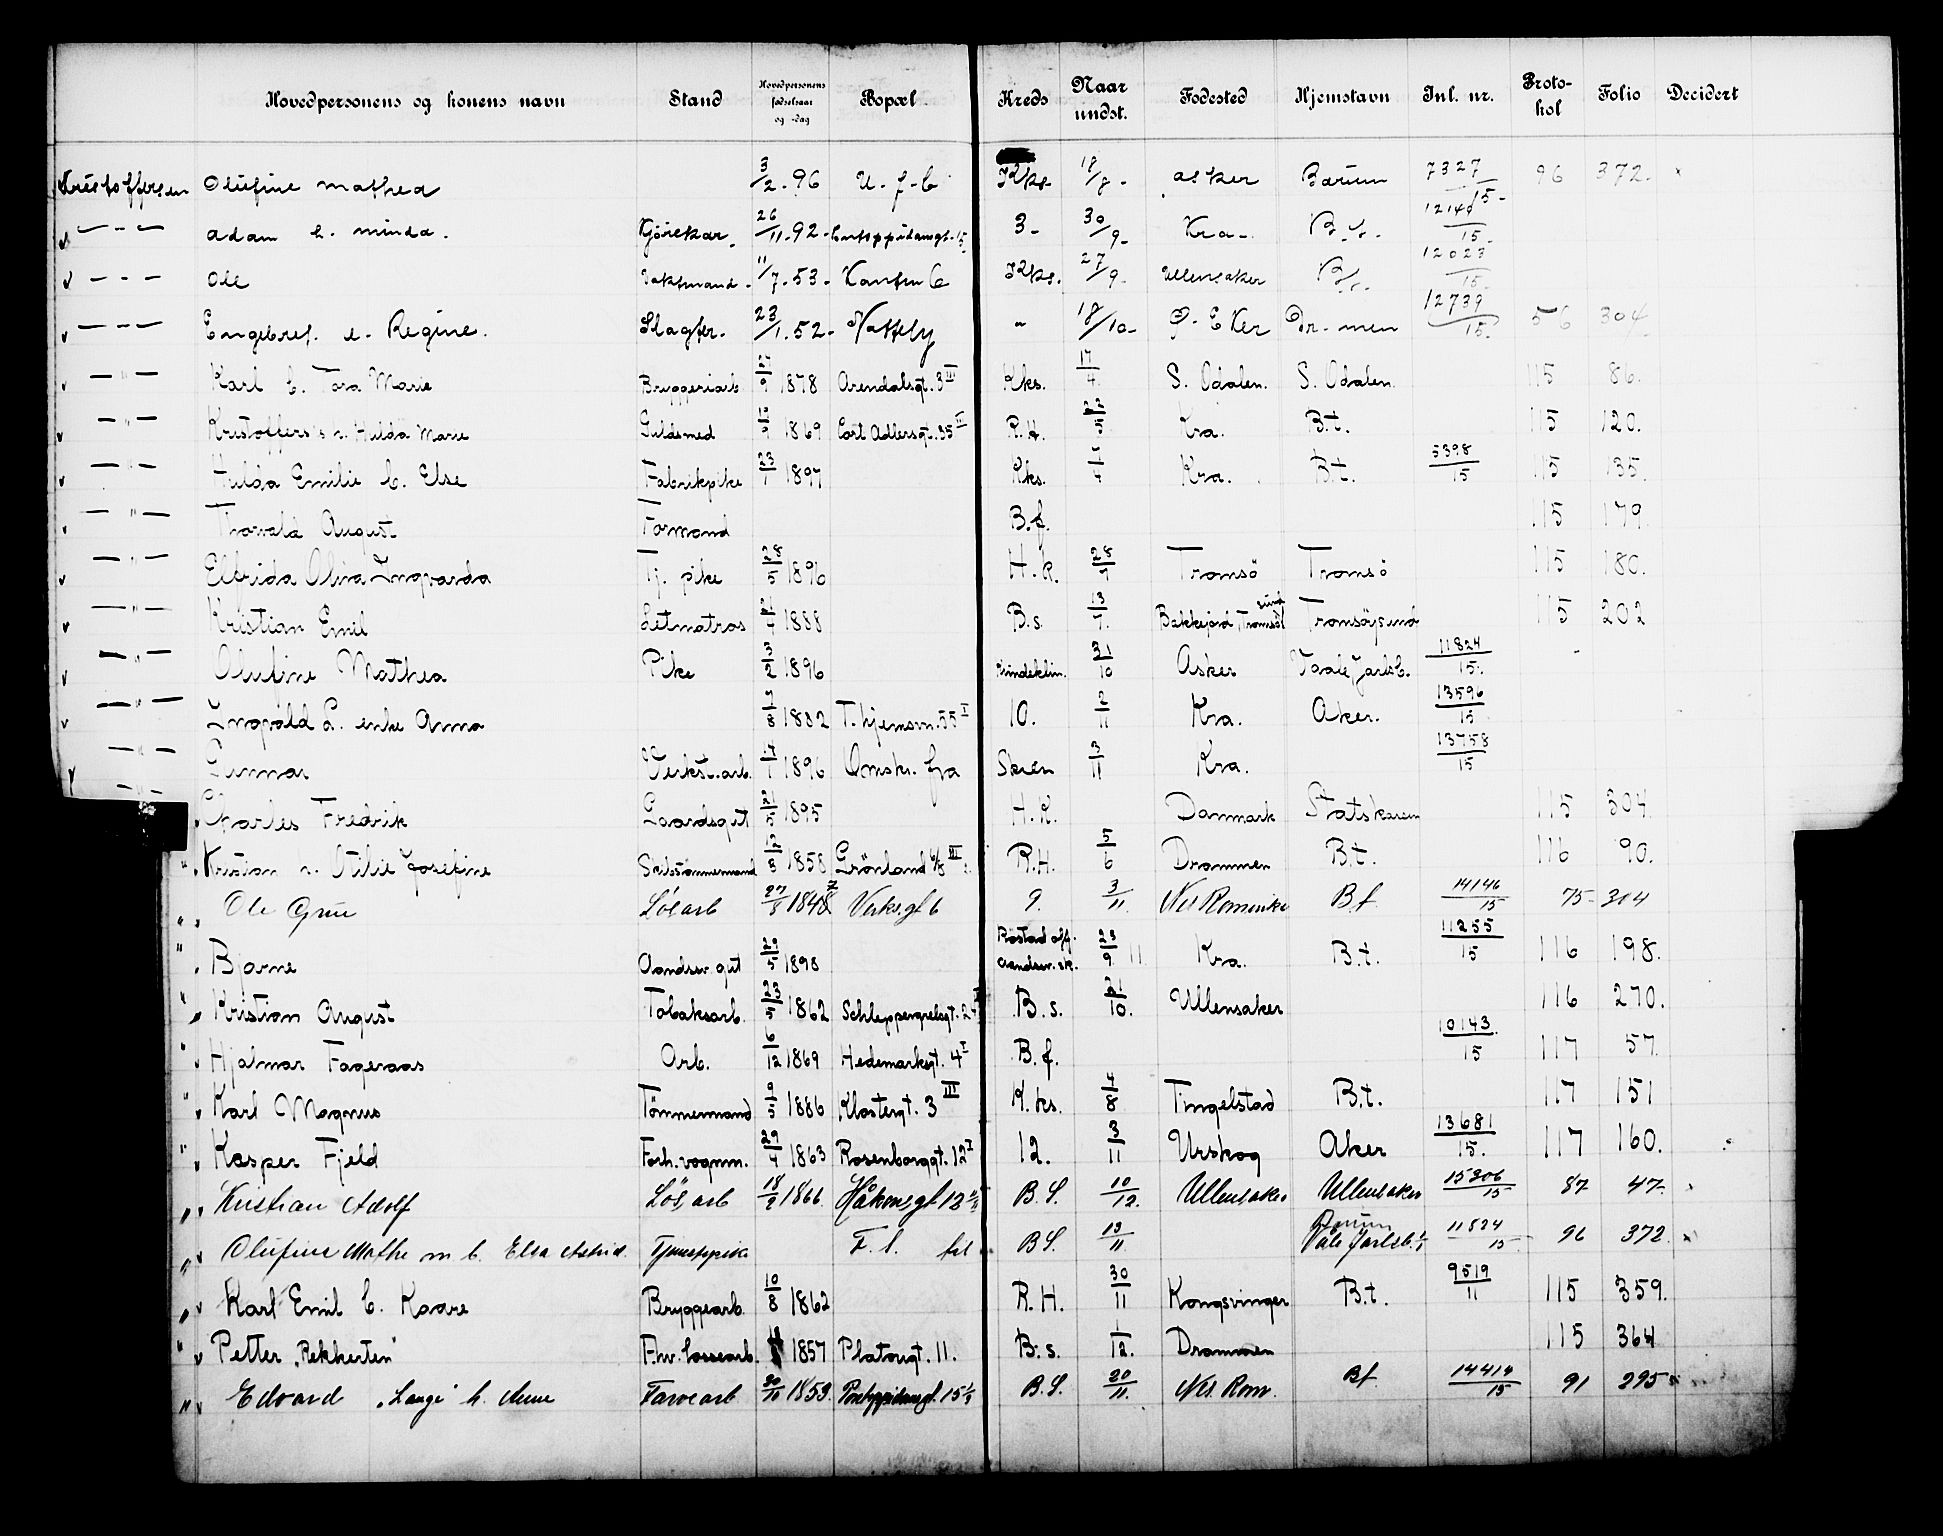 Hovedpersonens og konens navn Stand Hovedpersonens fødselsaar og -dag Bopæl. Kreds Naar undst. Fødested Hjemstavn Inl. nr. Protokol Folio Decidert
Kristoffersen Olufine Mathea 3/2 - 96 U. f. b. Kks. 18/8 - Asker Bærum 7327/15 - 96 372.
— " — Adam e. Minda. Kjörekar. 26/11 - 92 - 15 3 - 30/9 - Kra - B.t. 12141/15 -
— " — Ole Vaktmand - 11/7 - 53 - Kanten 6 Kks. 27/9 - Ullensaker B.t. 12023/15 -
— " — Engebret. e. Regine. Slagter. 23/1. 52 - Nattely " 18/10 - Ö. Eker Dr-men 12739/15. 56 304
— " — Karl E. Tora Marie Bryggeriarb. 27/9 1878 Arendalsgt. 3 III Kks. 17/4 S. Odalen. S. Odalen. 115 86.
— " — Kristoffers's e. Hulda Marie Guldsmed 12/9 1869 Cort Adlersgt. 35 II R.H. 22/5 Kra. B.t. 115 120.
— " — Hulda Emilie b. Else Fabrikpike 23/7 1897 Kks. Kra. B.t. 5398/15 115 135.
— " — Thorvald August Formand B.f. 115 179.
— " — Elfrida Olina Ingvarda Tj. pike 28/5 1896 H.k. 28/7 Tromsö Tromsö 115 180.
— " — Kristian Emil Letmatros 21/4 1888 B.s. 13/7. Bakkejord, Tromsösund Tromsöysund 115 202
— " — Olufine Mathea Pike 3/2 1896 Kvindeklin. 31/10 Asker Vaale Jarlsb. 11824/15.
— " — Ingvald L. enke Anna 7/8 1882 T. hjemsvn. 55 I 10. 2/11 Kra. Aker. 13596/15
— " — Gunnar Verkst. arb. 17/1 1896 Omskr. fra Skien 3/11 Kra. 13758/15
— " — Charles Fredrik Gaardsgut 21/5 1895 H.K. Danmark Statskasen 115 304
" Kristian e. Otilie Josefine Skibstömmermand 12/8 1858 Grönland 6/8 III R.H. 5/6 Drammen B.t. 116 90.
" Ole Grue Lösarb 27/8 1848 Verksgt 6 9. 3/11. Nes Romerike B.f. 14146/15 75 - 304
" Bjarne Aandsv. gut 29/5 1898 Röstad off. aandsv. sk. 23/9 11 Kra. B.t. 11255/15 116 198.
" Kristian August Tobaksarb. 23/5 1862 Schleppegrelsgt. 24 B.s. 21/10. Ullensaker 116 270.
" Hjalmar Fageraas Arb. 6/12 1869 Hedemarksgt. 4 I B.f. 10143/15 117 57.
" Karl Magnus Tömmermand 9/5 1886 Klostergt. 3 III K.ks. 4/8 Tingelstad B.t. 117 151
" Kasper Fjeld Forh. vognm. 29/4 1863 Rosenborggt. 12 I 12. 3/11 Urskog Aker 13681/15. 117 160.
" Kristian Adolf Lösarb 18/2 1866 Håkonsgt 12 B.S. 10/12. Ullensaker Ullensaker 15306/15 87 47.
" Olufine Mathe m b. Elsa Astrid. Tjenestpike F. l. B.S. 13/11. Bærum Våle Jarlsb. 11824/15 96 372.
" Karl Emil b. Kaare Bryggearb. 10/8 1862 R.H. 30/11 Kongsvinger B.t. 9519/11 115 359.
" Petter "Rekkerten" 1857 Platougt. 11. B.s. 1/12. Drammen 115 364
" Edvard "Lange" h. Anne Farvearb 30/11 1859. 15 B.S. 20/11. Nes Rom. B.f. 14414/15 91 295